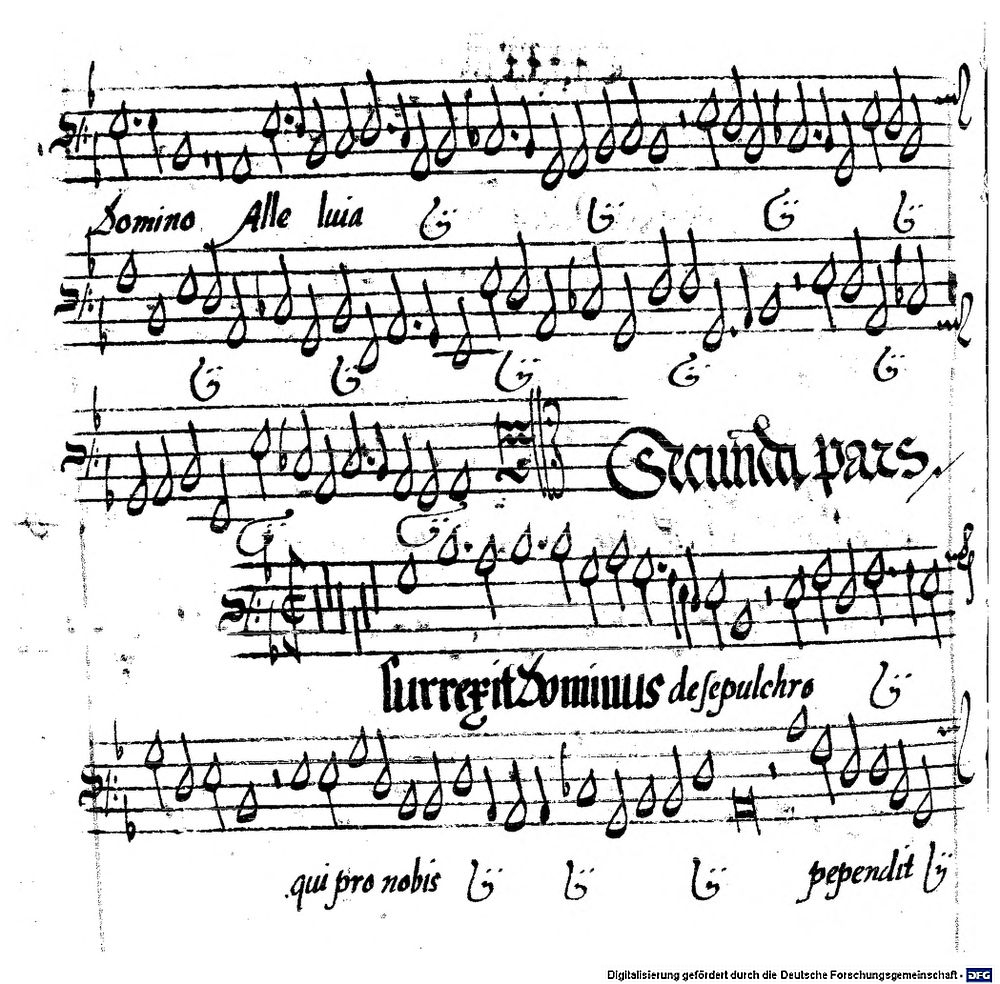 Domino Alle luia ij ij ij ij
ij ij ij ij ij
Secunda pars.
ij ij
Surrexit Dominus de sepulchro ij
qui pro nobis ij ij ij pependit ij
Digitalisierung gefördert durch die Deutsche Forschungsgemeinschaft - DFG